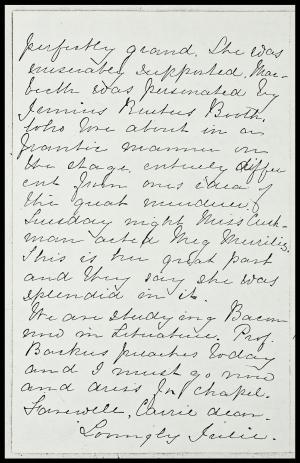 perfectly grand. She was
miserably supported. Mac-
beth was personated by
Jennius Brutus Booth.
who tore about in a
frantic manner on
the stage, entirely differ
ent from ones idea of
the great murderer.
Tuesday night Miss Cush-
man acted Meg Merrilies.
This is her great part
and they say she was
splendid in it.
We are studying Bacon
now in Literature. Prof.
Backus preaches today
and I must go now
and dress for chapel.
Farewell, Carrie dear.
Lovingly Julie.